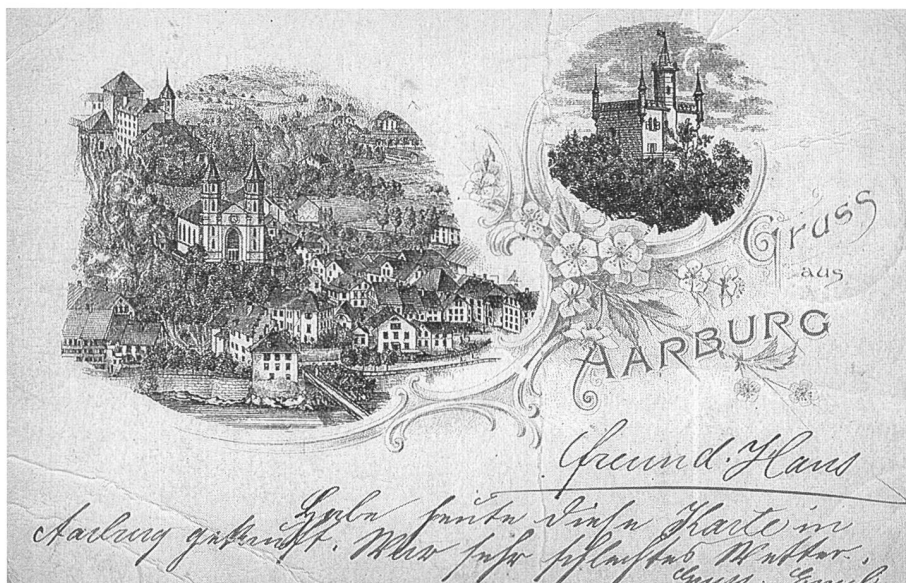 Gruss
aus
AARBURG
Freund. Hans
Habe heute diese Karte in
Aarburg gekauft. War sehr schlechtes Wetter.
Gruss